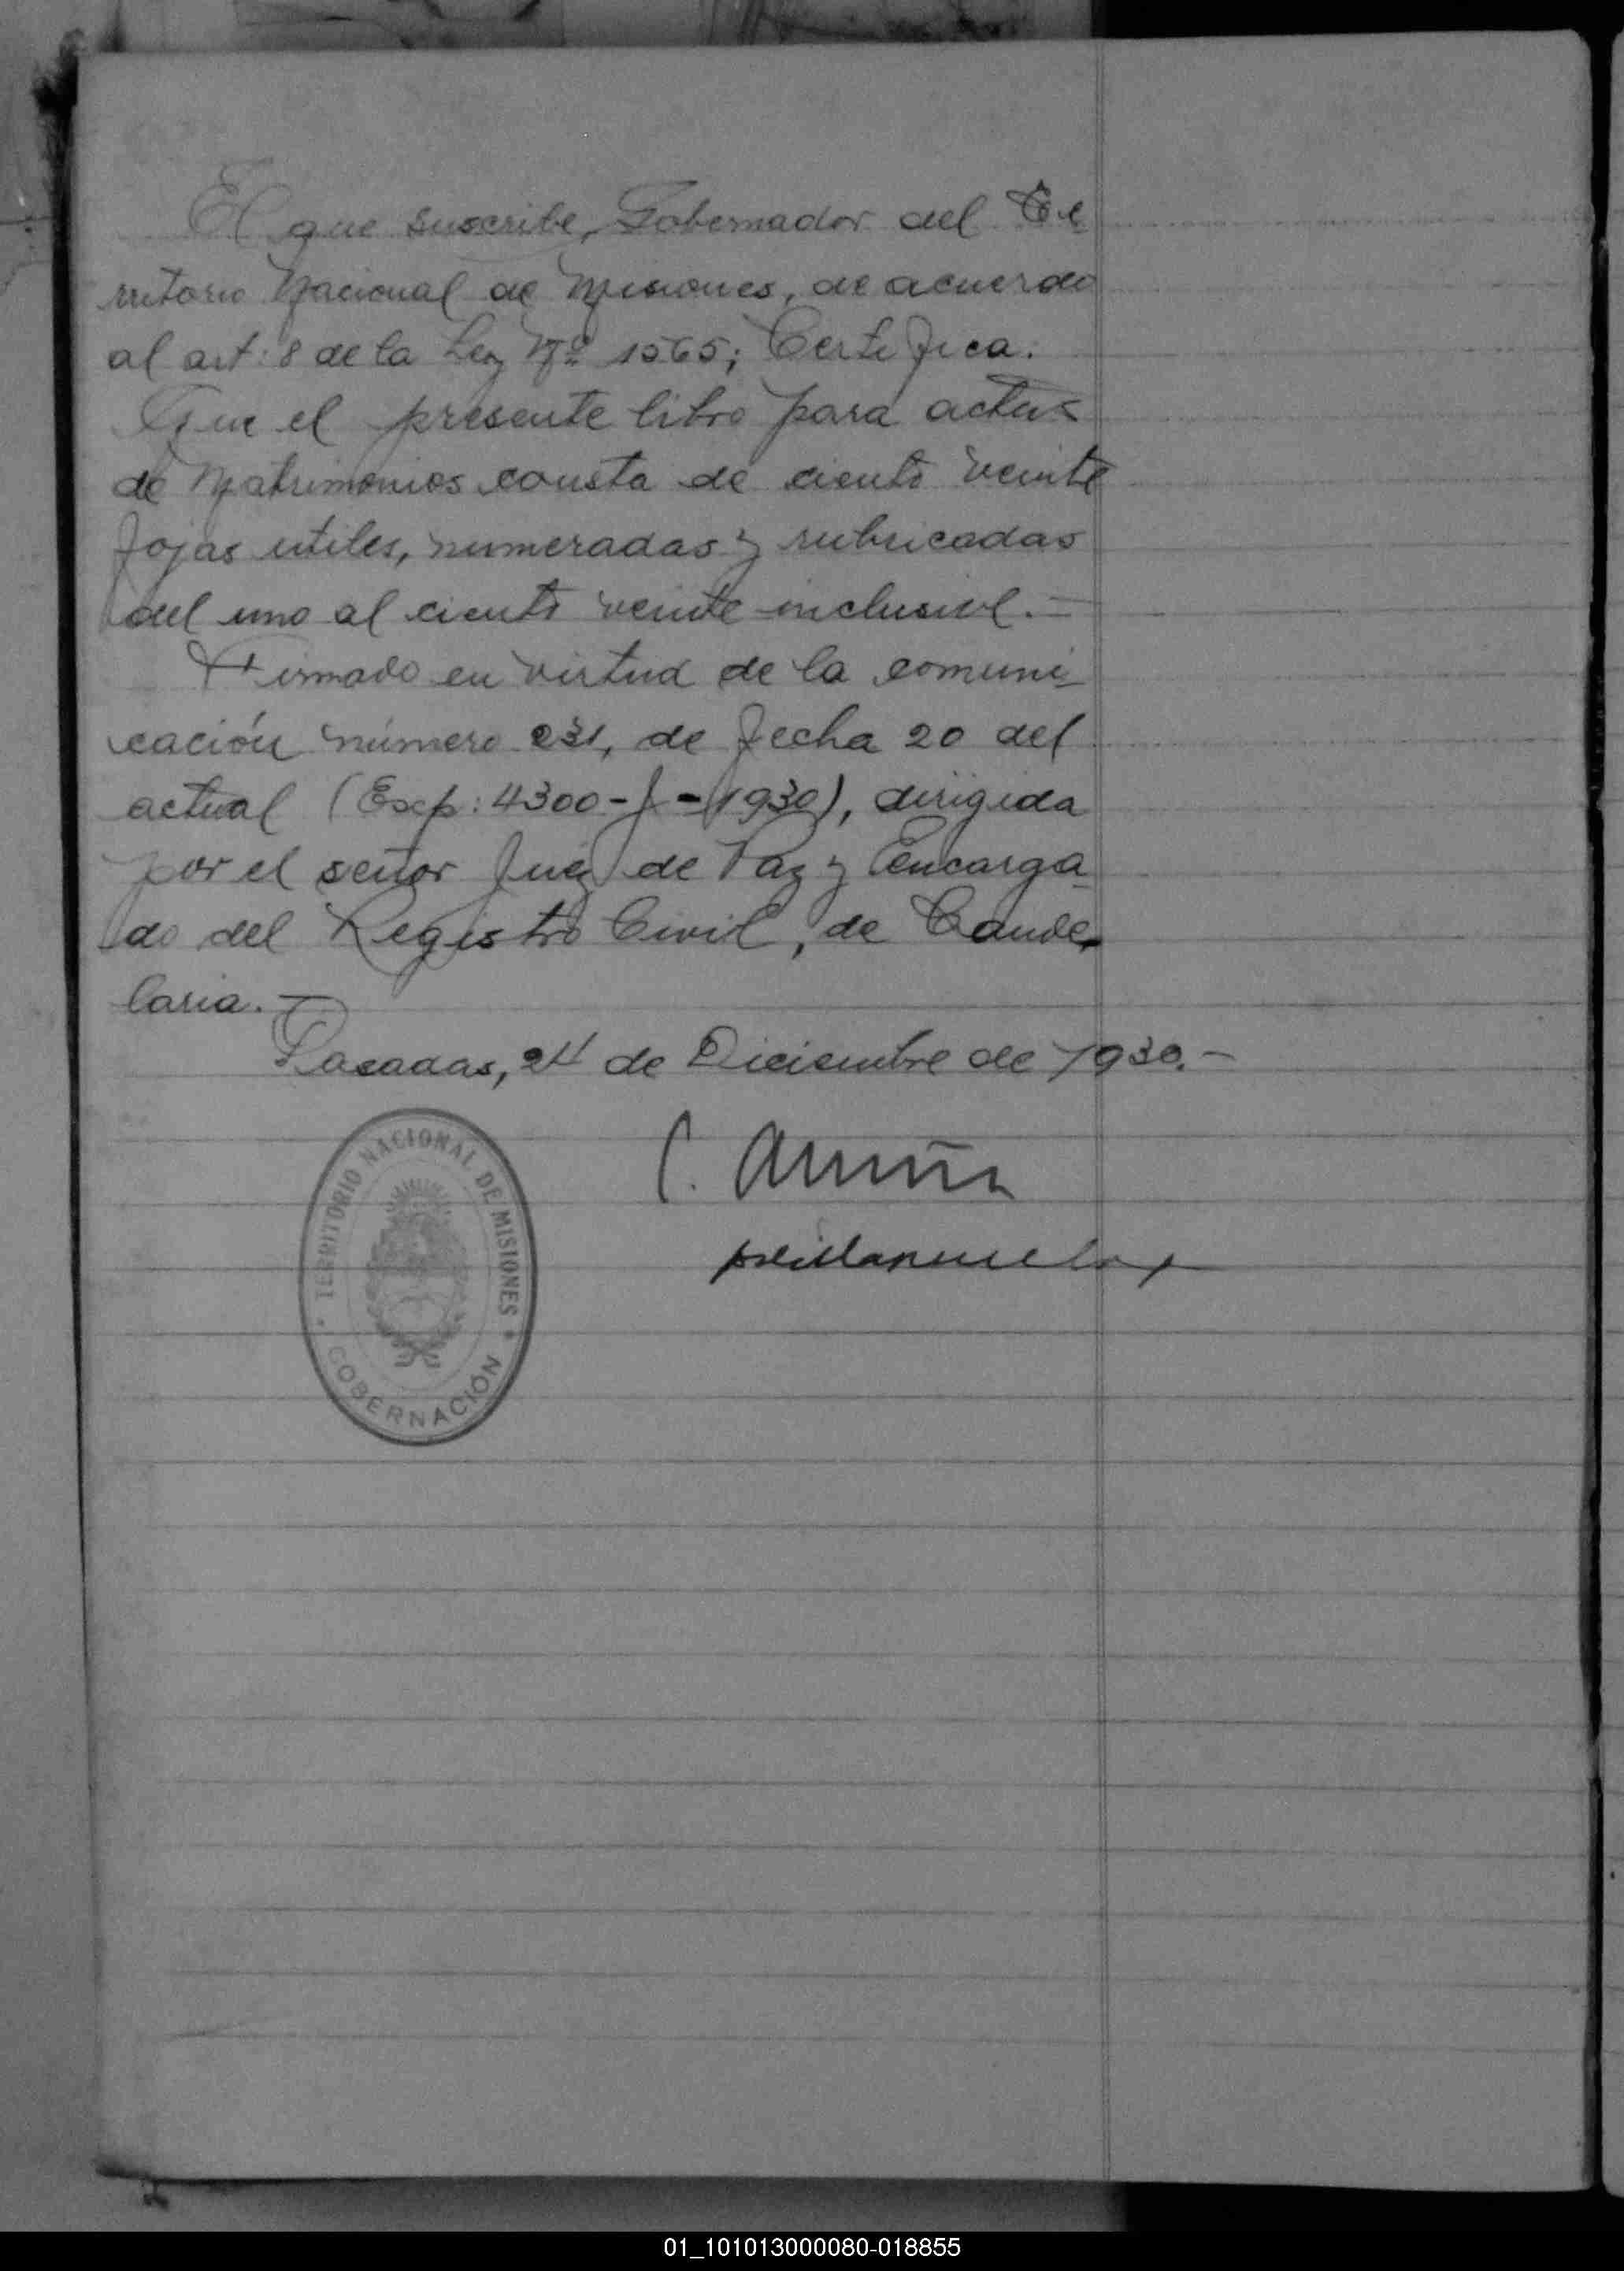 El que suscribe, Gobernador del Te
rritorio Nacional de Misiones, de acuerdo
al art: 8 de la Ley Nº 1565; Certifica:
Que el presente libro para actas
de Matrimonios consta de ciento veinte
fojas utiles, numeradas y rubricadas
del uno al ciento veinte inclusive.—
Firmado en virtud de la comuni-
cación número 231, de fecha 20 del
actual (Exp: 4300-J-1930), dirigida
por el señor Juez de Paz y Encarga-
do del Registro Civil, de Cande-
laria.—
Posadas, 24 de Diciembre de 1930.—
TERRITORIO NACIONAL DE MISIONES
GOBERNACIÓN
01_101013000080-018855